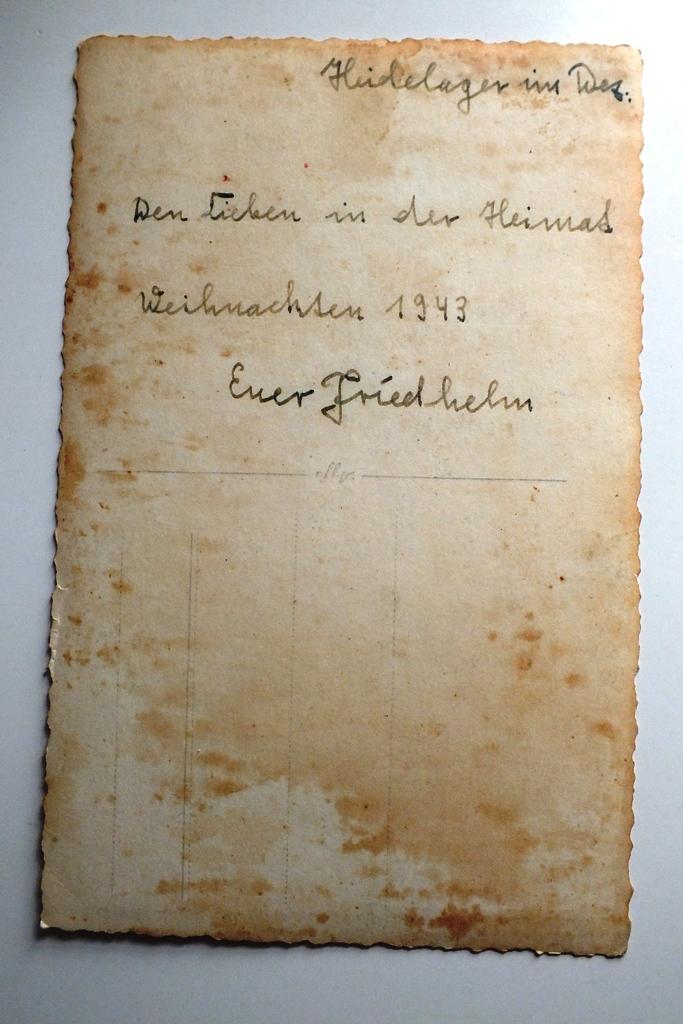 Heidelager im Dez.
Den Lieben in der Heimat
Weihnachten 1943
Euer Friedhelm